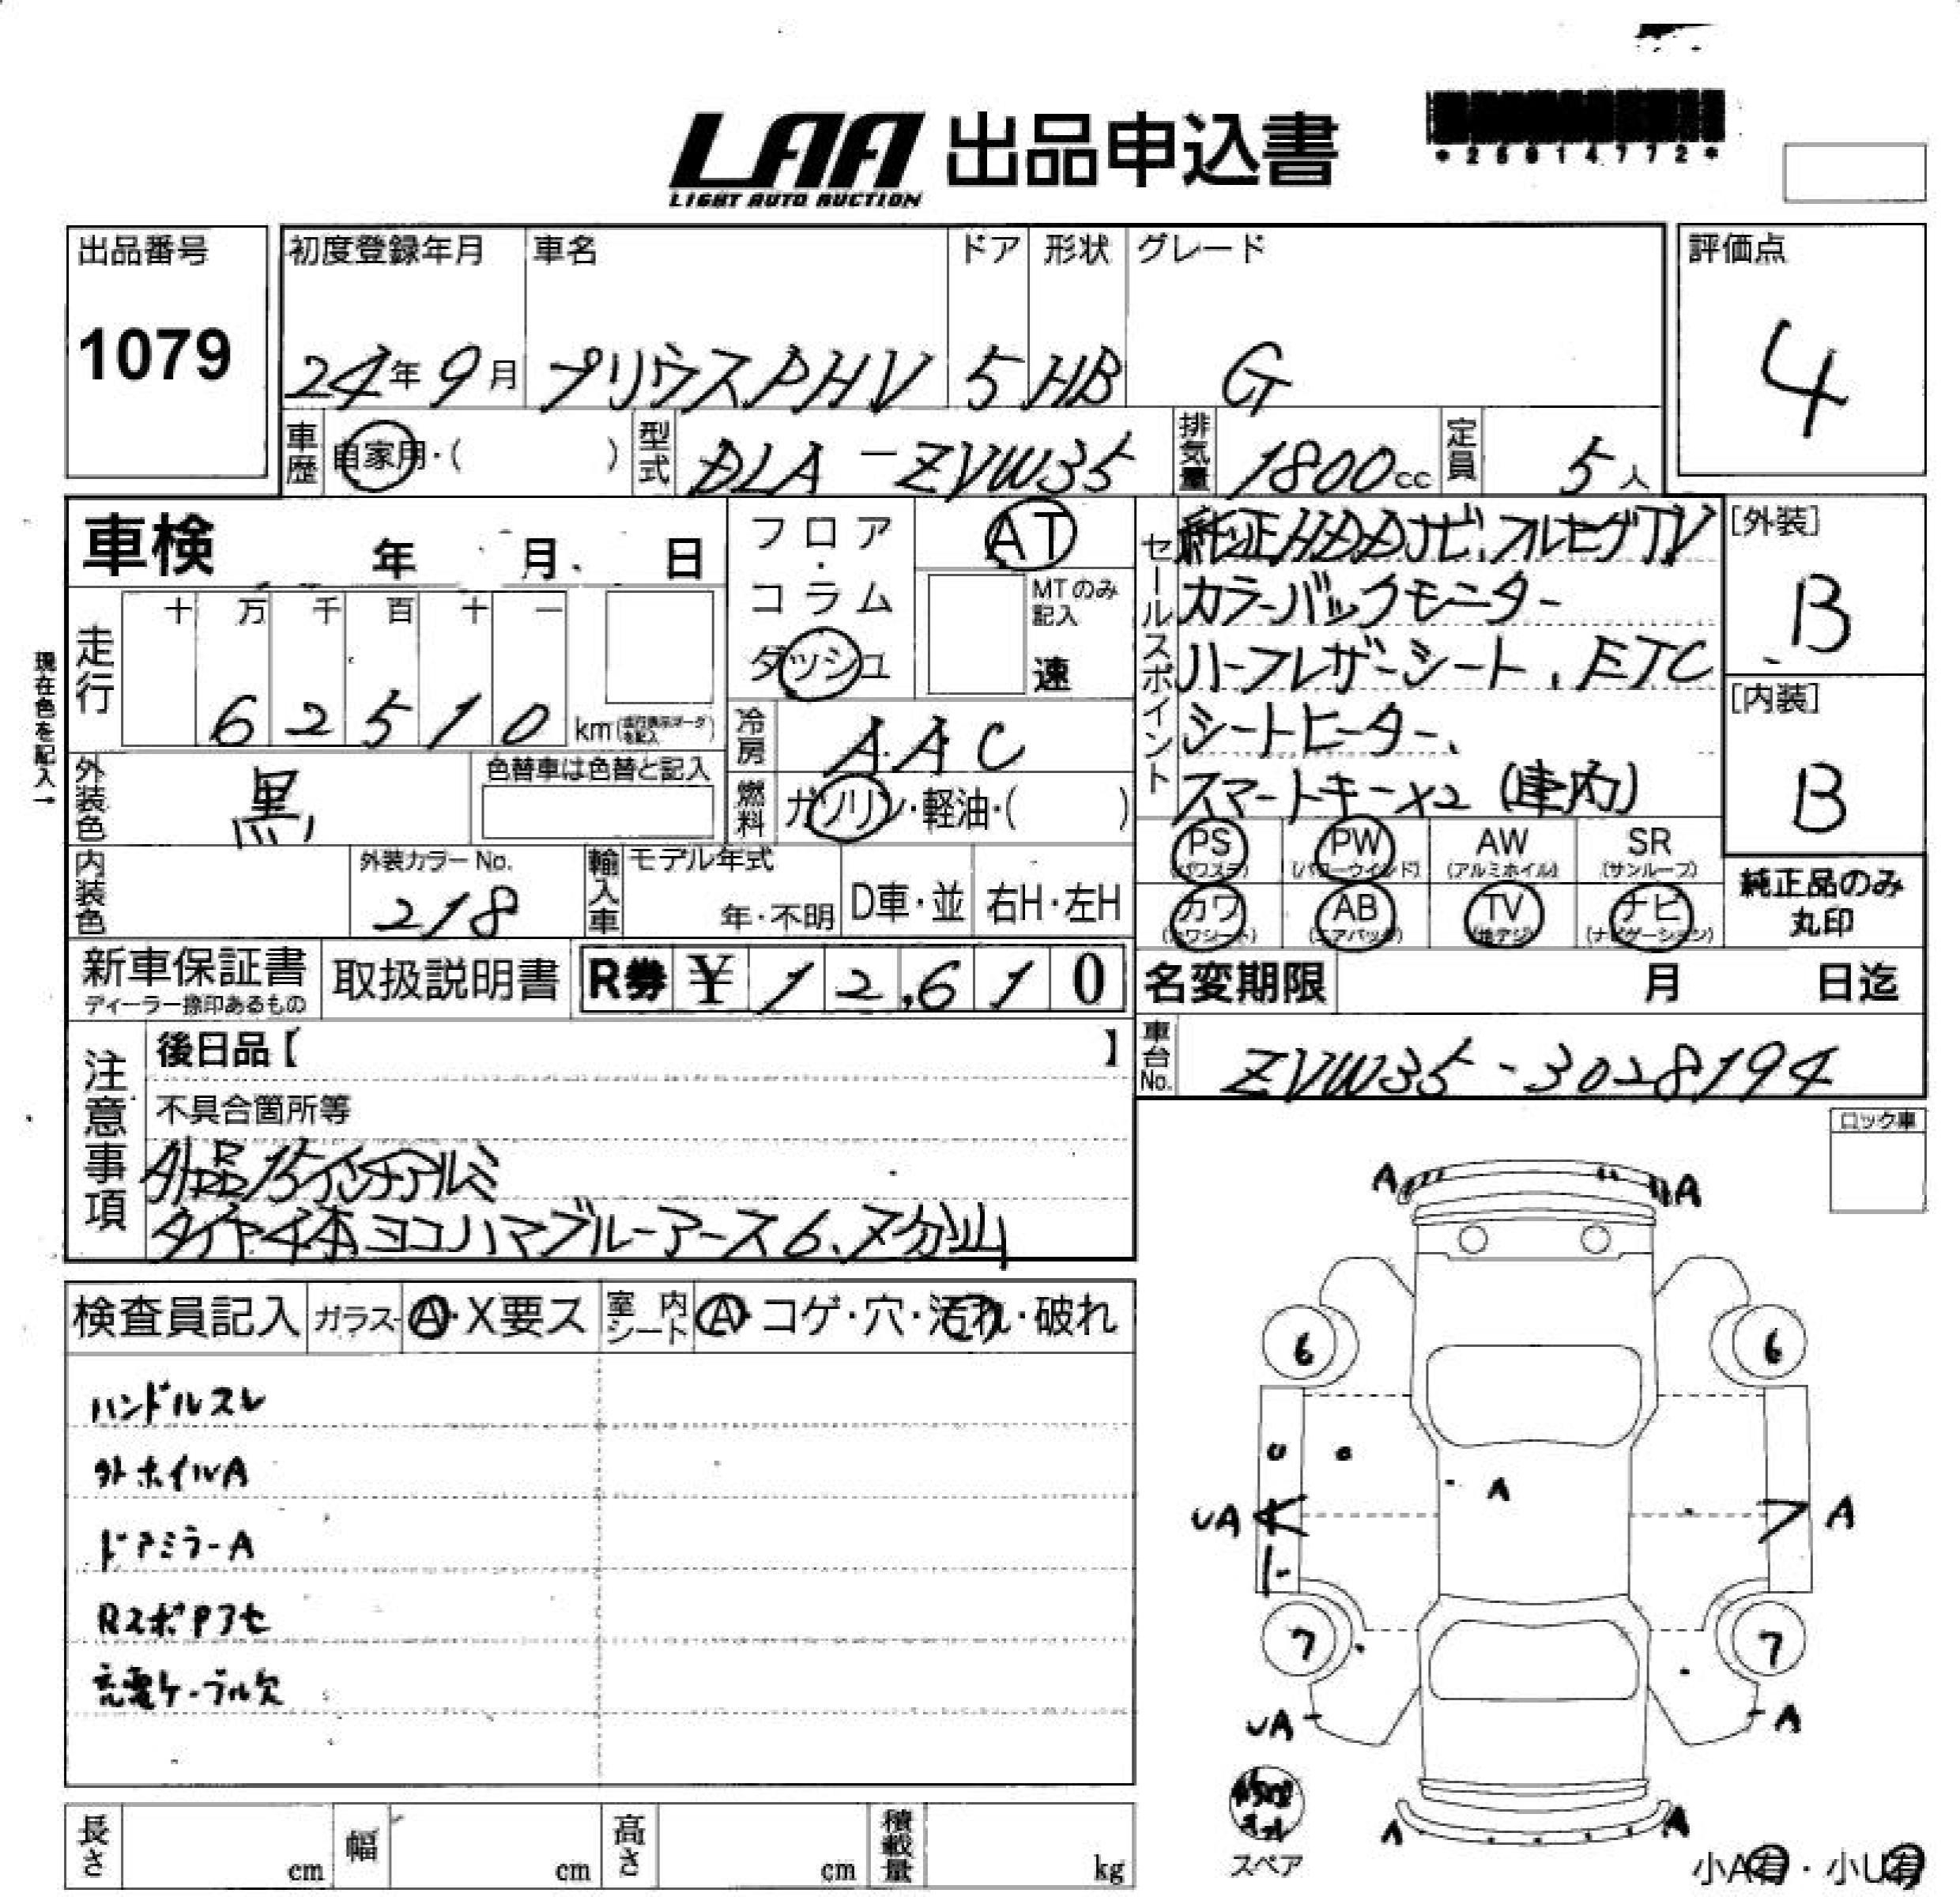 LAA 出品申込書
LIGHT AUTO AUCTION
出品番号
1079
初度登録年月 車名 ドア 形状 グレード
24年9月 プリウスPHV 5 HB G
評価点
4
車歴 自家用・( ) 型式 DLA-ZVW35 排気量 1800cc 定員 5人
車検 年 月 日
フロア・コラム ダッシュ
AT
MTのみ記入
速
セールスポイント
純正HDDナビ、フルセグTV
カラーバックモニター
ハーフレザーシート、ETC
シートヒーター、
スマートキー×2 (車内)
[外装]
B
[内装]
B
現在色を記入→
走行 十 万 千 百 十 一
62510 km
冷房 AAC
外装色 黒 色替車は色替と記入
燃料 ガソリン・軽油・( )
PS (パワステ) PW (パワーウインドウ) AW (アルミホイル) SR (サンルーフ)
カワ (カワシート) AB (エアバック) TV (地デジ) ナビ (ナビゲーション)
純正品のみ
丸印
内装色 外装カラーNo. 218
輸入車 モデル年式 年・不明 D車・並 右H・左H
新車保証書 取扱説明書 R券 ¥12,610
ディーラー捺印あるもの
名変期限 月 日迄
車台No. ZVW35-3028194
注意事項
後日品【 】
不具合箇所等
外品15インチアルミ
タイヤ4本ヨコハマブルーアース6、7分山
ロック車
検査員記入 ガラス A・X要ス 室内シート A・コゲ・穴・汚れ・破れ
ハンドルスレ
外ホイルA
ドアミラーA
RスポPアセ
充電ケーブル欠
A A
6 6
A
UA A
7 7
UA A
A A
スペア
小A有・小U有
長さ cm 幅 cm 高さ cm 積載量 kg